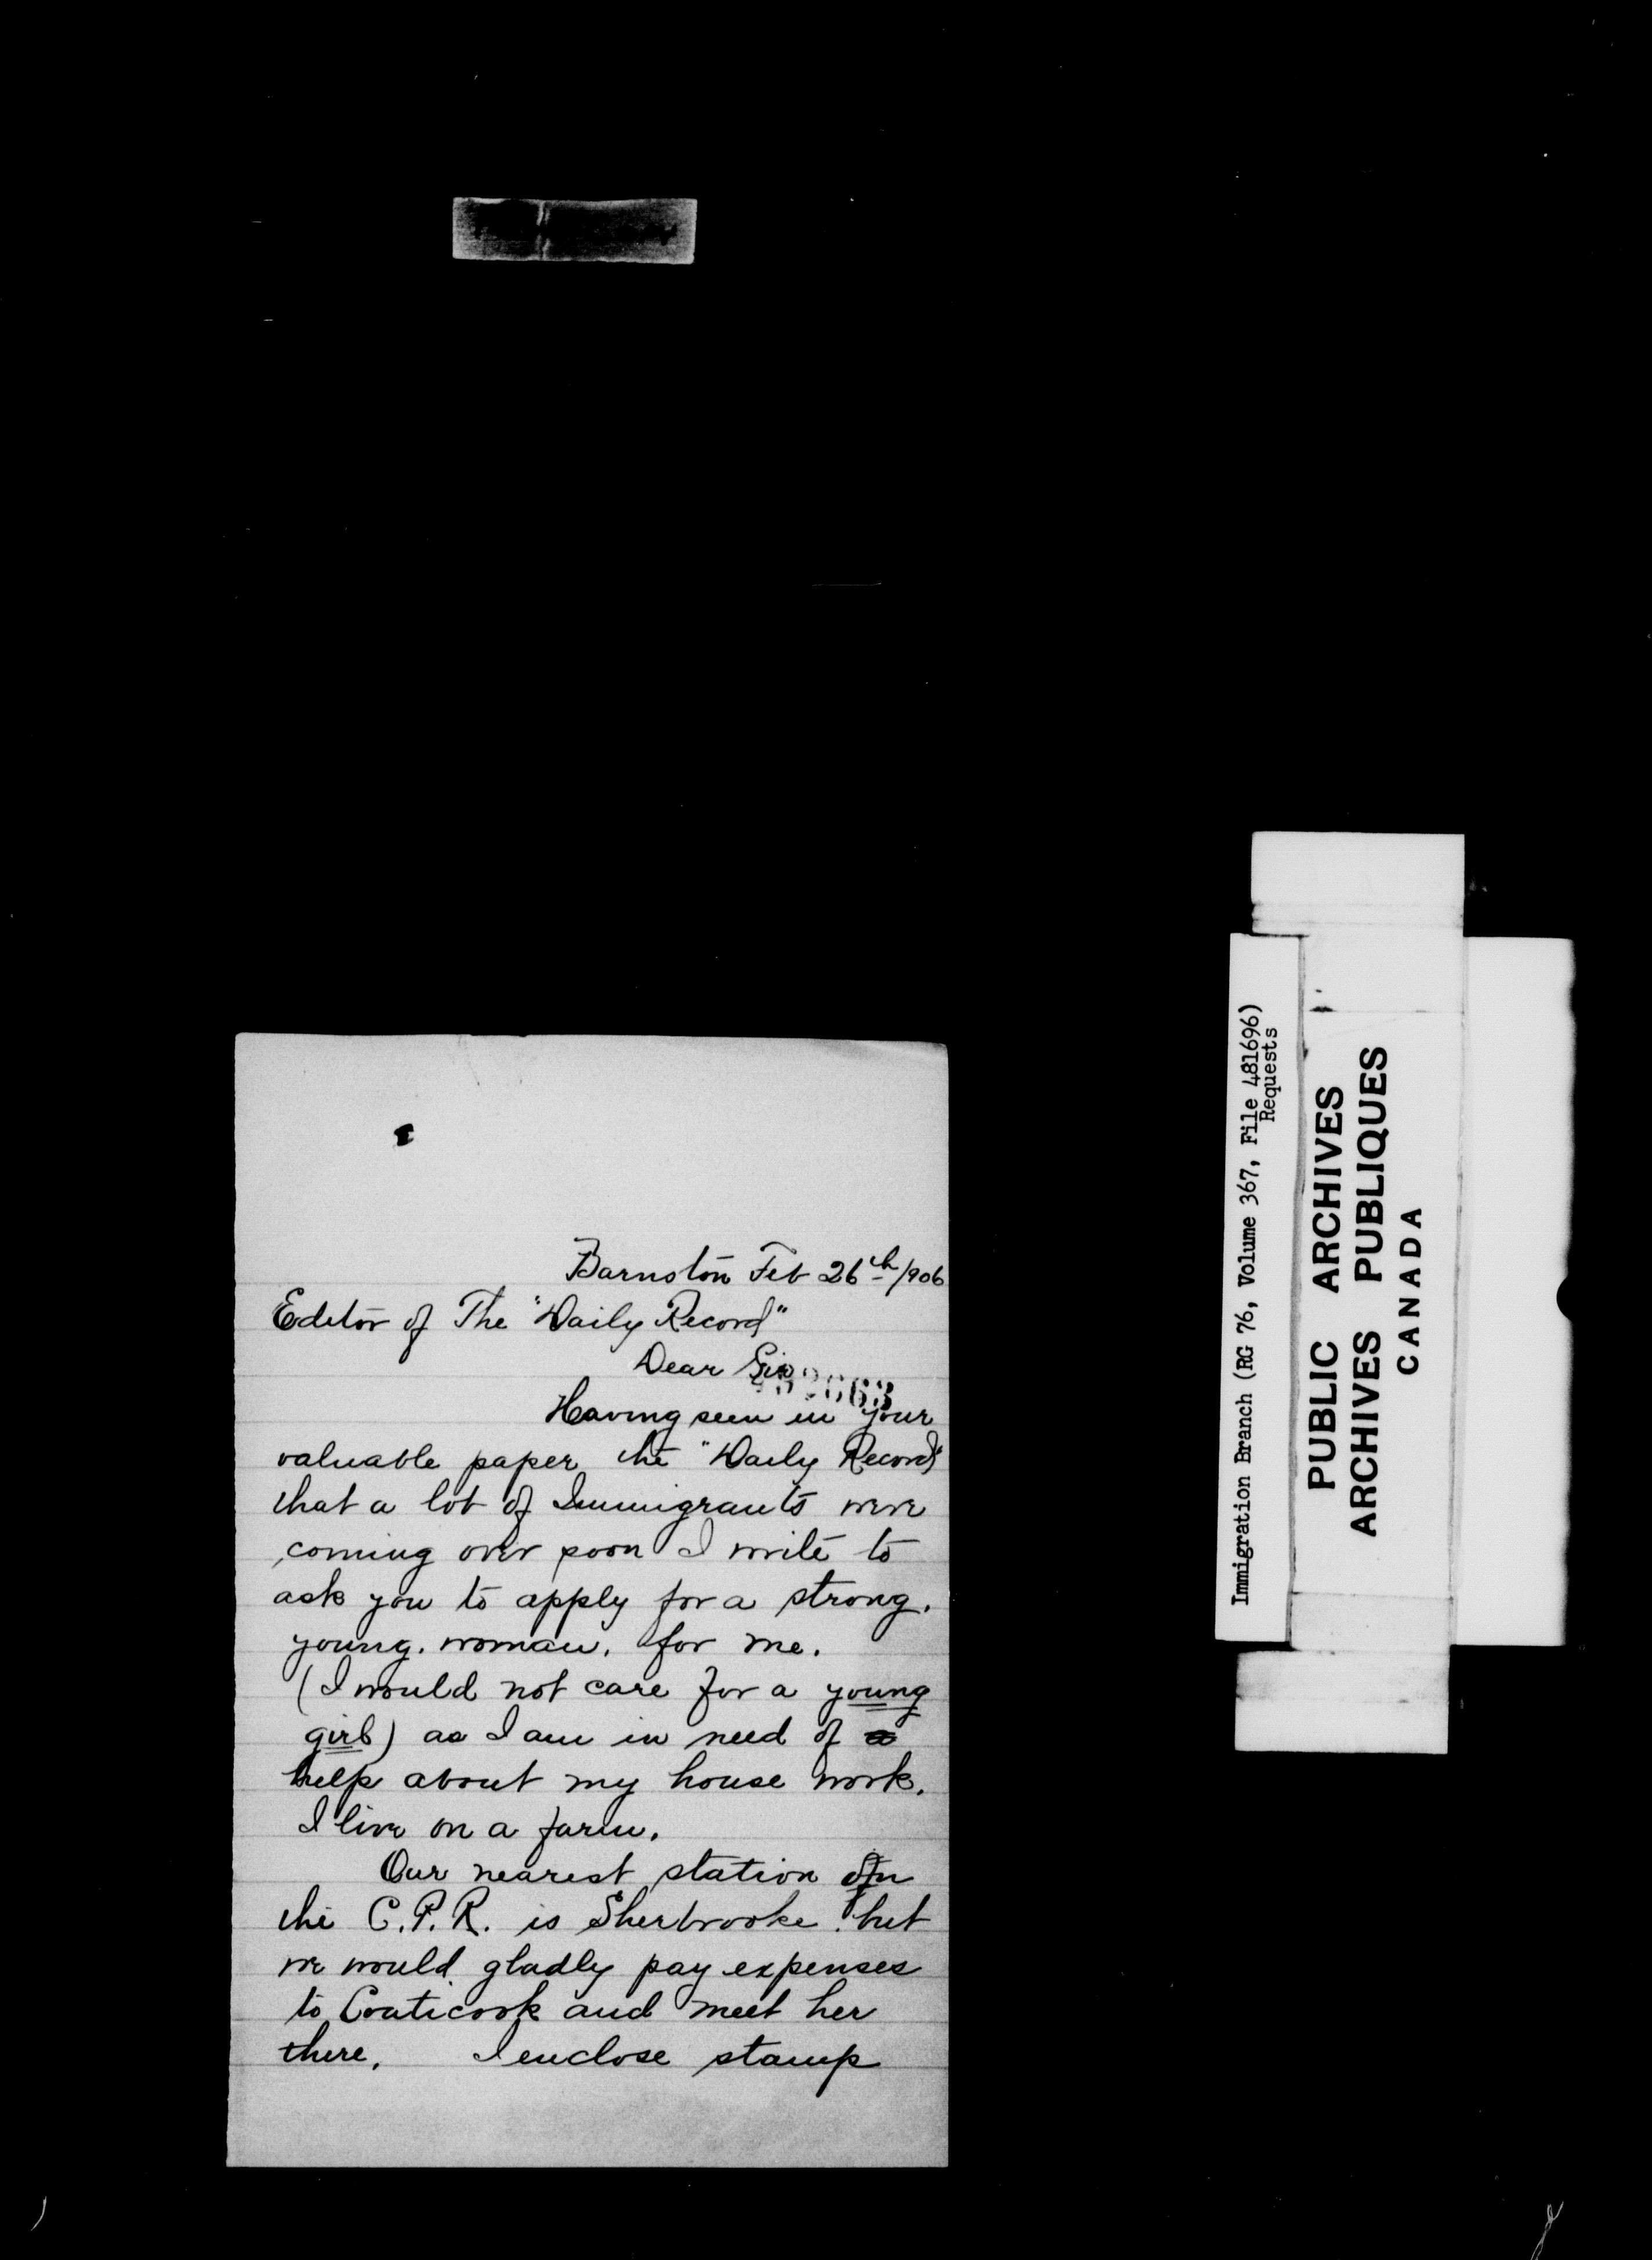 Barnston Feb 26th/906
Editor of The "Daily Record"
Dear Sir
Having seen in your
valuable paper the "Daily Record"
that a lot of Immigrants were
coming over soon I write to
ask you to apply for a strong.
young. woman. for me.
(I would not care for a young
girl) as I am in need of a
help about my house work.
I live on a farm.
Our nearest station on
the C.P.R. is Sherbrooke. but
we would gladly pay expenses
to Coaticook and meet her
there. I enclose stamp
Immigration Branch (RG 76, Volume 367, File 481696)
Requests
PUBLIC ARCHIVES
ARCHIVES PUBLIQUES
CANADA